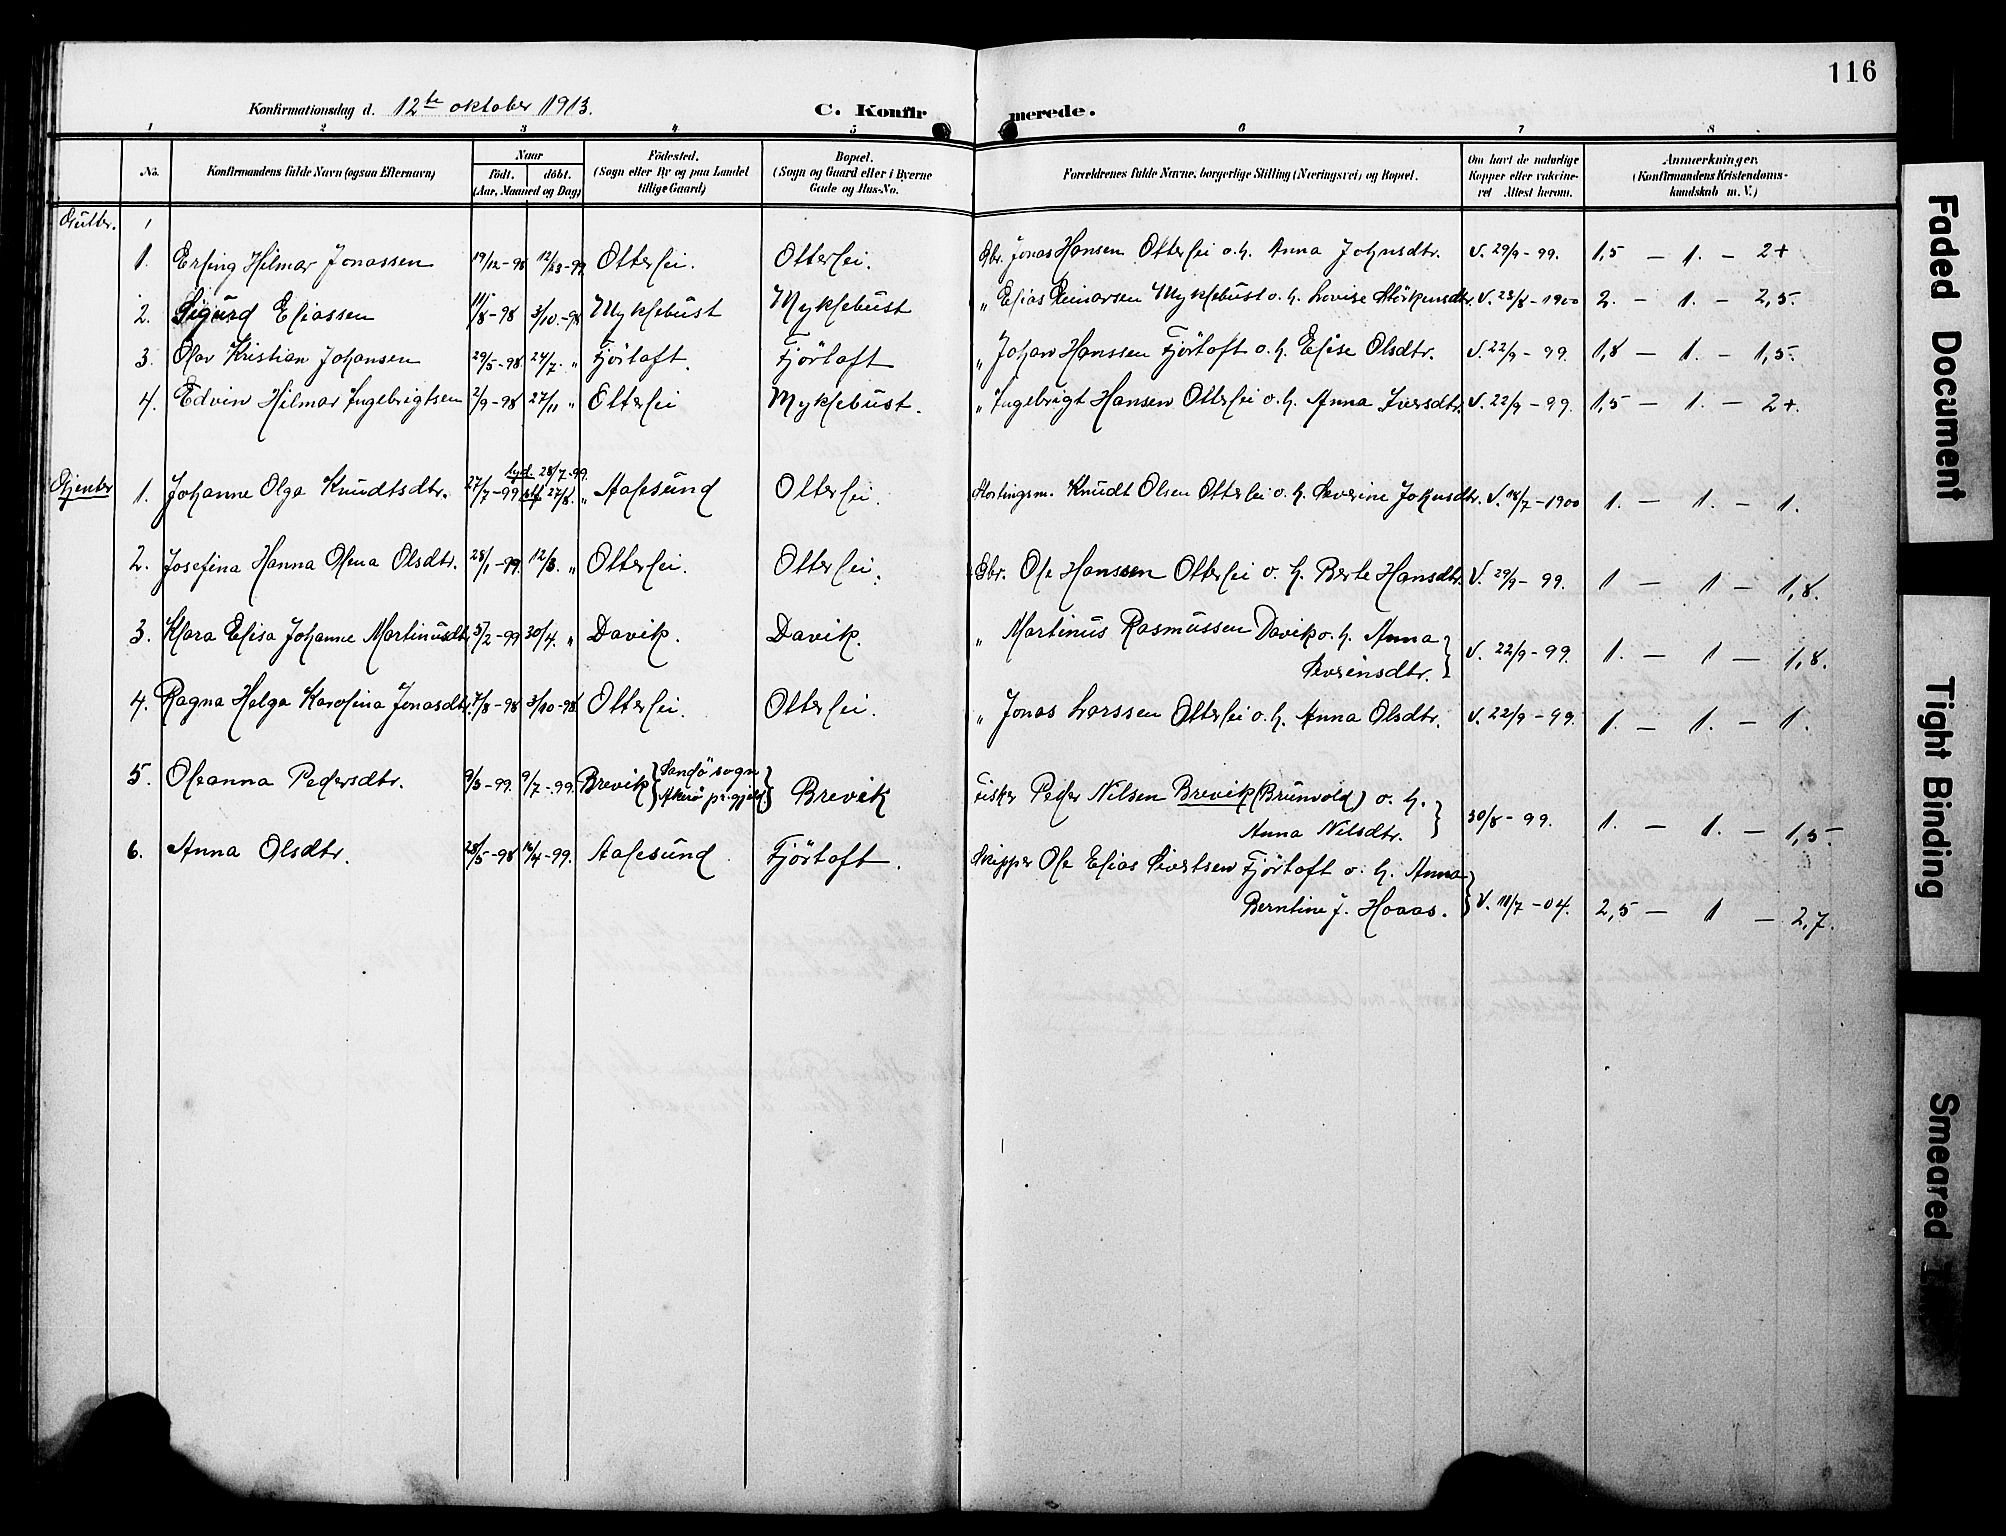 116
Konfirmationsdag d. 12te oktober 1913.
C. Konfirmerede.
1 2 3 4 5 6 7 8
No.
Konfirmandens fulde Navn (ogsaa Efternavn)
Naar
födt. döbt.
(Aar, Maaned og Dag)
Födested.
(Sogn eller By og paa Landet
tillige Gaard)
Bopæl.
(Sogn og Gaard eller i Byerne
Gade og Hus-No.
Forældrenes fulde Navne, borgerlige Stilling (Næringsvei) og Bopæl.
Om havt de naturlige
Kopper eller vakcine-
ret Attest herom.
Anmærkninger.
(Konfirmandens Kristendoms-
kundskab m. V.)
Gutter.
1. Erling Hilmar Jonassen 19/12-98 Otterlei. Otterlei. Gbr. Jonas Hansen Otterlei o.h. Anna Johnsdtr. V. 29/9-99. 1,5 — 1. — 2+
2. Sigurd Eliassen 3/10.-98 Myklebust Myklebust " Elias Myklebust o.h. Lovise V. 23/8-1900 2. — 1. — 2,5.
3. Olav Kristian Johansen 29/5-98 24/7. " Fjörtoft. Fjörtoft " Johan Hanssen Fjörtoft o.h. Elise Olsdtr. V. 22/9-99. 1,8 — 1. — 1,5.
4. Edvin Hilmar Ingebrigtsen 2/9-98 27/11 " Otterlei Myklebust. " Ingebrigt Hansen Otterlei o.h. Anna Iversdtr. V. 22/9-99. 1,5 — 1. — 2+.
28/7-99.
Pjenter 1. Johanne Olga Knudtsdtr. 27/7-99 27/8. " Aalesund Otterlei. Knudt Olsen Otterlei o.h. Severine Johnsdtr. V. 18/7-1900 1. — 1. — 1.
2. Josefina Hanna Olena Olsdtr. 28/1-99. 12/3. " Otterlei. Otterlei. Gbr. Ole Hanssen Otterlei o. h. Berte Hansdtr. V. 29/9-99. 1 — 1 — 1,8.
3. Klara Elisa Johanne Martinusdtr. 5/2-99 30/4. " Davik. Davik. " Martinus Rasmussen Davik o.h. Anna
Sevrinsdtr. V. 22/9-99. 1. — 1 — 1,8.
4. Ragna Helga Karolina Jonasdtr. 7/8-98 3/10-98 Otterlei. Otterlei. " Jonas Larssen Otterlei o.h. Anna Olsdtr. V. 22/9-99. 1. — 1. — 1.
5. Oleanna Pedersdtr. 9/3-99. 9/7-99. Brevik { Sandö sogn
Akerö pr.gjeld. } Brevik Fisker Peder Nilsen Brevik (Brunvold) o. h.
Anna Nilsdtr. } 30/8-99. 1. — 1. — 1,5.
6. Anna Olsdtr. 28/5-98 16/4-99. Aalesund Fjörtoft. Skipper Ole Elias Sivertsen Fjörtoft o. h. Anna
Berntine J. Hoaas. } V. 11/7-04. 2,5 — 1 — 2,7.
Faded Document
Tight Binding
Smeared